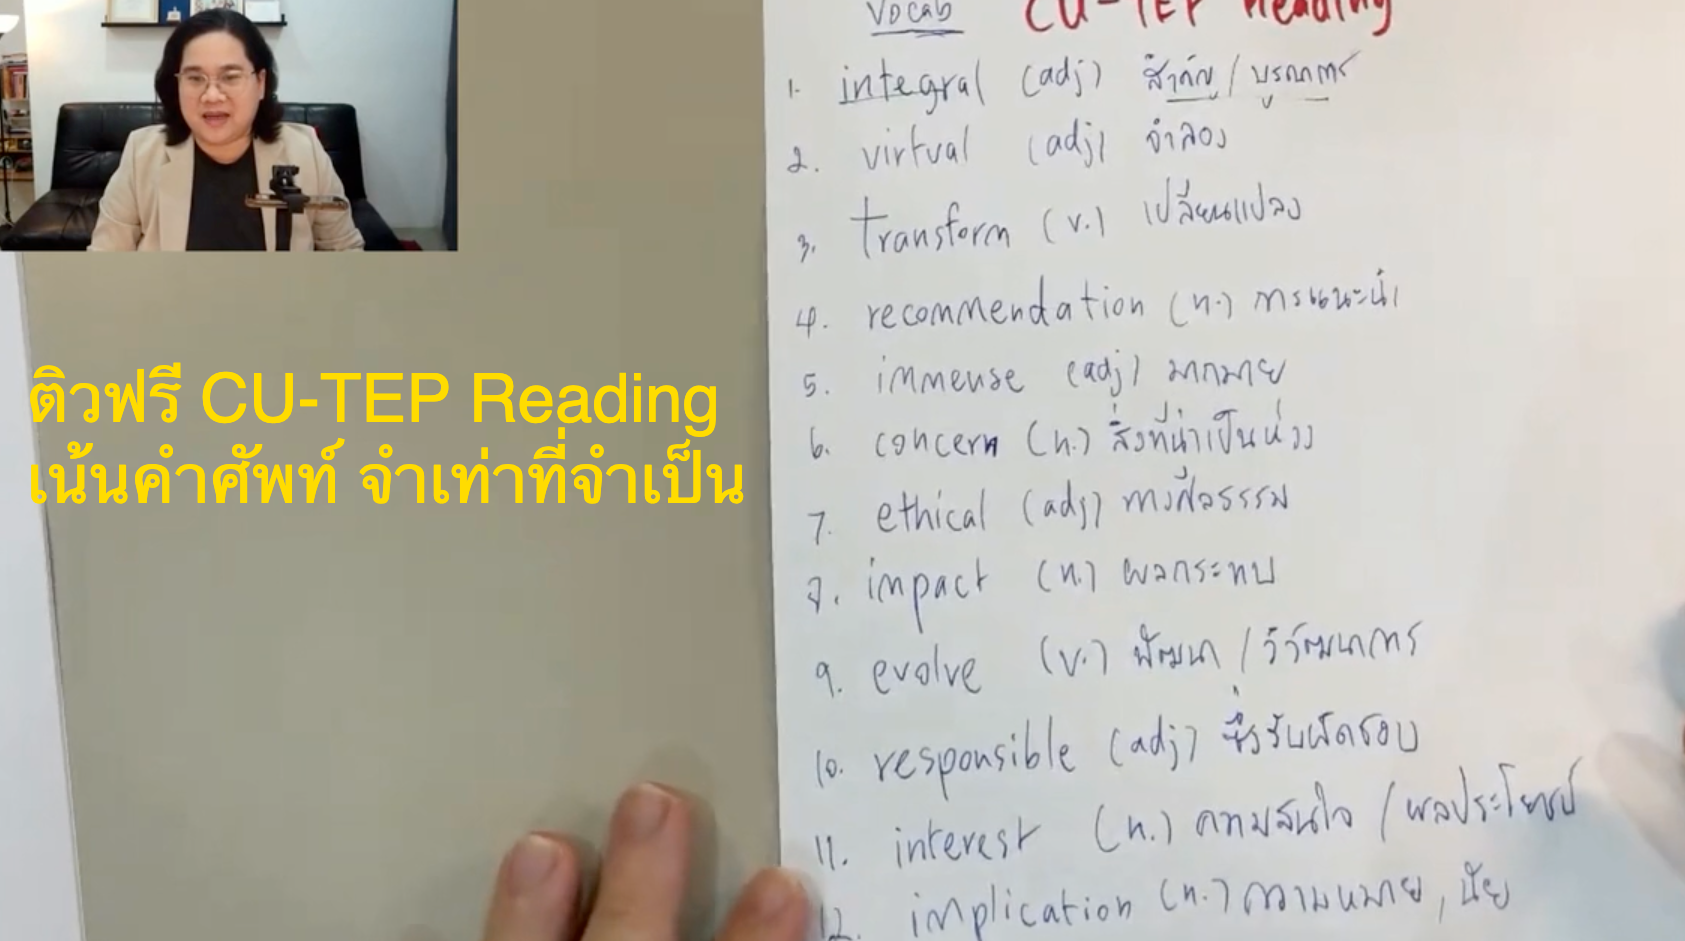 Vocab CU-TEP Reading
1. integral (adj) สำคัญ / บูรณาการ
2. virtual (adj) จำลอง
3. transform (v.) เปลี่ยนแปลง
4. recommendation (n.) การแนะนำ
5. immense (adj) มากมาย
6. concern (n.) สิ่งที่น่าเป็นห่วง
7. ethical (adj) ทางศีลธรรม
8. impact (n.) ผลกระทบ
9. evolve (v.) พัฒนา / วิวัฒนาการ
10. responsible (adj) ซึ่งรับผิดชอบ
11. interest (n.) ความสนใจ / ผลประโยชน์
12. implication (n.) ความหมาย, นัย
ติวฟรี CU-TEP Reading
เน้นคำศัพท์ จำเท่าที่จำเป็น